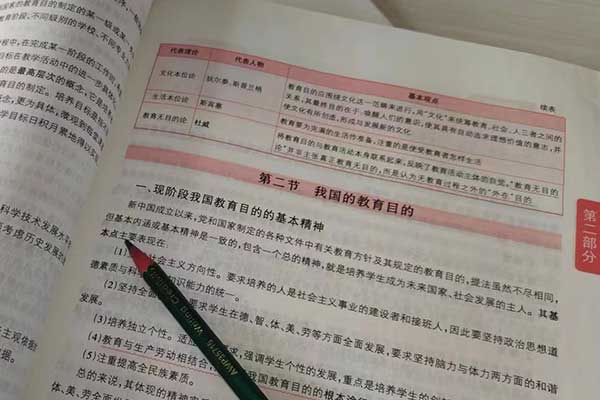 国家的教育目的制定的某一级或某一
教育阶段、不同级别的学校、不同专
程中，在完成某一阶段的工作
目标在教学活动中的进一步
的是最高层次的概念，它是
教育目的制定。培养目标是
概念，更为具体，微观到每
学目标日积月累地得以
科学技术发展水平
考虑历史发展的
主观依据
据。
续表
代表理论 代表人物 基本观点
文化本位论 狄尔泰、斯普兰格 教育目的应围绕文化这一范畴来进行，用“文化”来统筹教育、社会、人三者之间的
关系，其最终目的在于：唤醒人们的意识，使其具有自动追求理想价值的意志，并
使文化有所创造，形成与发展新的文化
生活本位论 斯宾塞 教育要为完满的生活作准备，注重的是使受教育者怎样生活
教育无目的论 杜威 将教育目的与教育活动本身联系起来，反映了教育活动主体的自觉。“教育无目的
论”并非主张真正教育无目的，而是认为无教育过程之外的“外在”目的
第二节 我国的教育目的
第二部分
一、现阶段我国教育目的的基本精神
新中国成立以来，党和国家制定的各种文件中有关教育方针及其规定的教育目的，提法虽然不尽相同，
但基本内涵或基本精神是一致的，包含一个总的精神，就是培养学生成为未来国家、社会发展的主人。其基
本点主要表现在：
(1) 社会主义方向性。要求培养的人是社会主义事业的建设者和接班人，因此要坚持政治思想道
德素质与科 知识能力的统一。
(2)坚持全面 要求学生在德、智、体、美、劳等方面全面发展，要求坚持脑力与体力两方面的和谐
发展。
(3)培养独立个性。适 求，强调学生个性的发展，重点是培养学生的创
(4)教育与生产劳动相结合 我国教育目的的根本途
(5)注重提高全民族素质。
总的来说，其体现的精神实
体、美、劳全面发